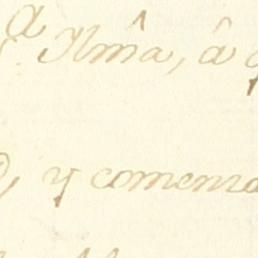 a Ylma, â
y comenza